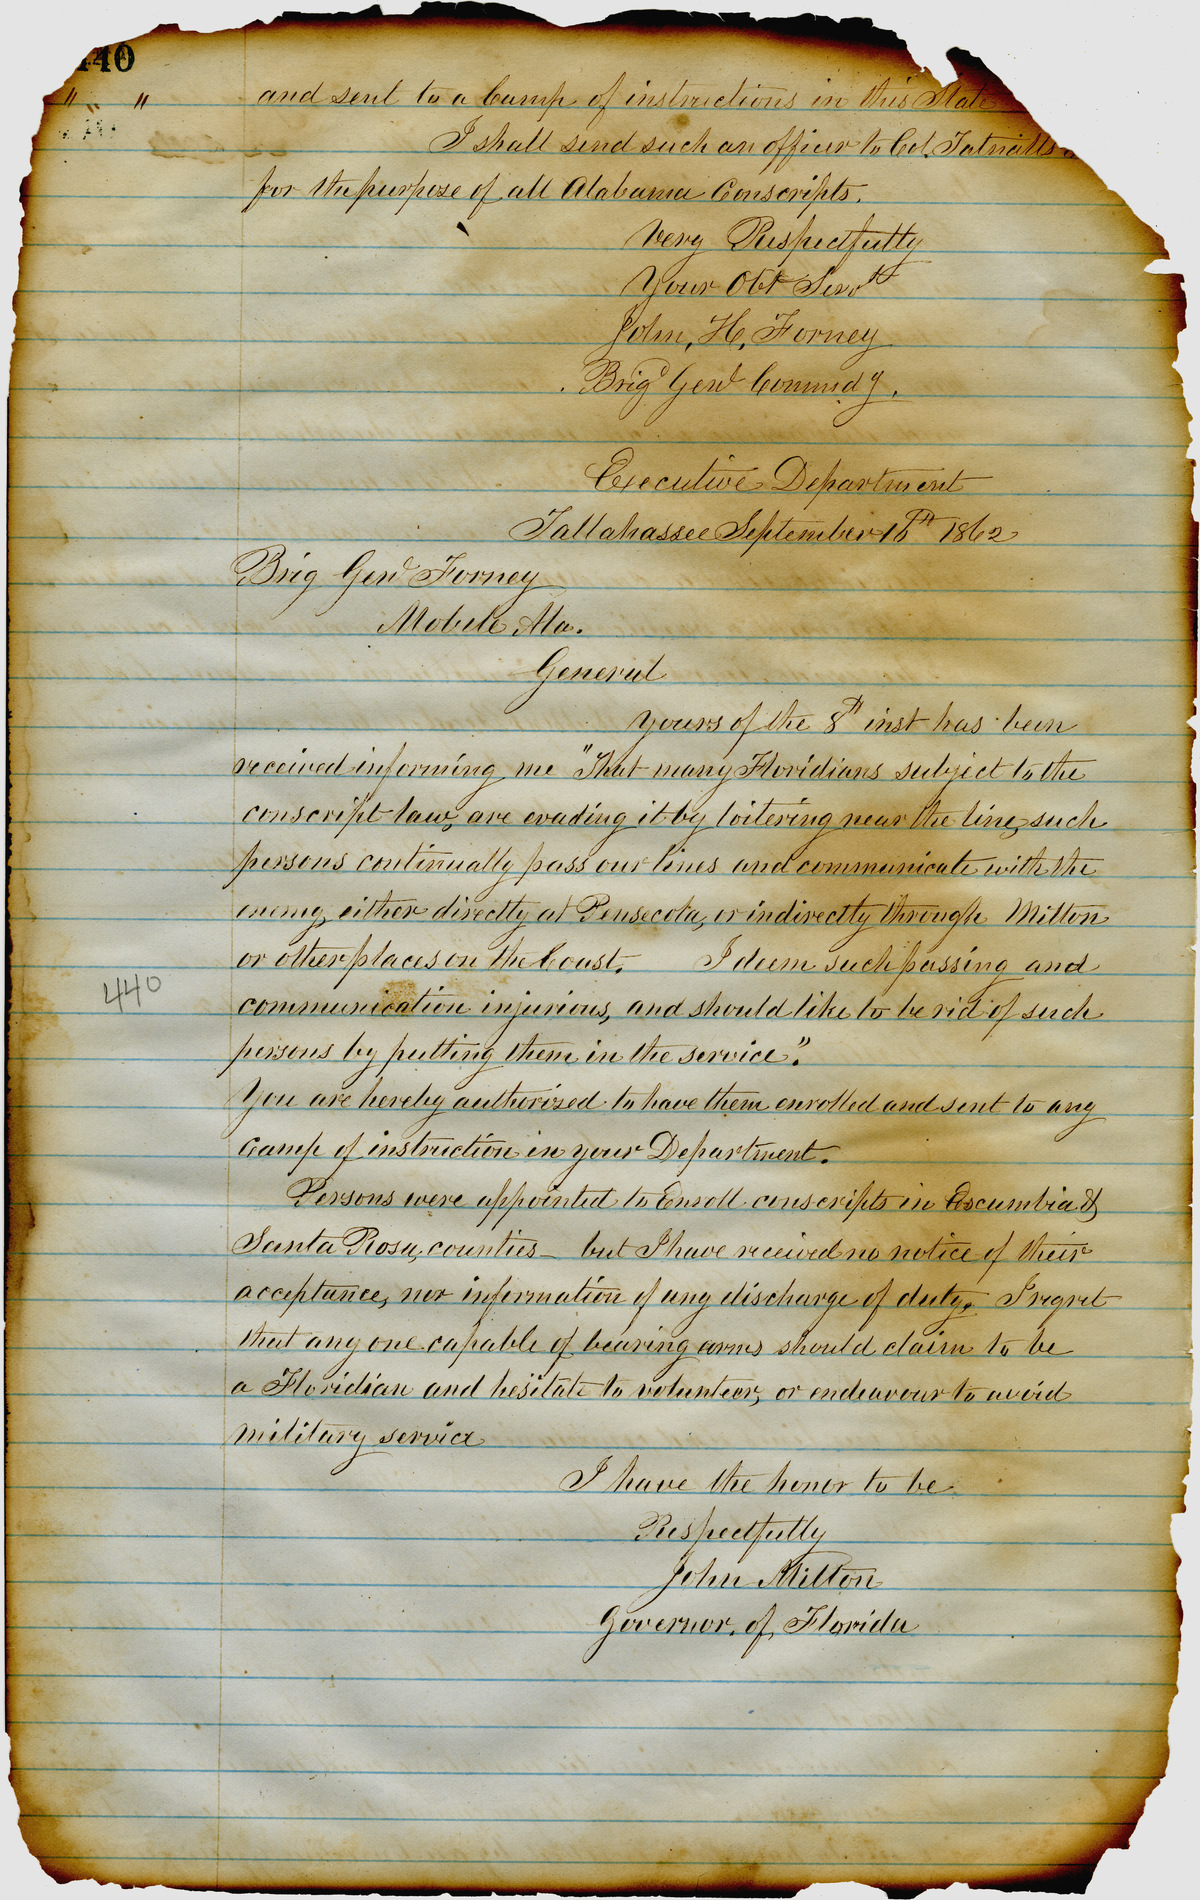 440
" "
and sent to a Camp of instructions in this State
I shall send such an officer to Col. Tatnalls
for the purpose of all Alabama Conscripts.
Very Respectfully
Your Obt Servt
John, H, Forney
Brigd Genl Commdg.
Executive Department
Tallahassee September 16th 1862
Brig Genl Forney
Mobile Ala.
General
Yours of the 8th inst has been
received informing me "That many Floridians subject to the
conscript law, are evading it by loitering near the line, such
persons continually pass our lines and communicate with the
enemy, either directly at Pensecola, or indirectly through Milton
or other places on the Coast. I deem such passing and
communication injurious, and should like to be rid of such
persons by putting them in the service".
440
You are hereby authorized to have them enrolled and sent to any
camp of instruction in your Department.
Persons were appointed to Enroll conscripts in Escumbia &
Santa Rosa, counties – but I have received no notice of their
acceptance, nor information of any discharge of duty. I regret
that any one capable of bearing arms should claim to be
a Floridian and hesitate to volunteer, or endeavour to avoid
military service
I have the honor to be
Respectfully
John Milton
Governor, of, Florida